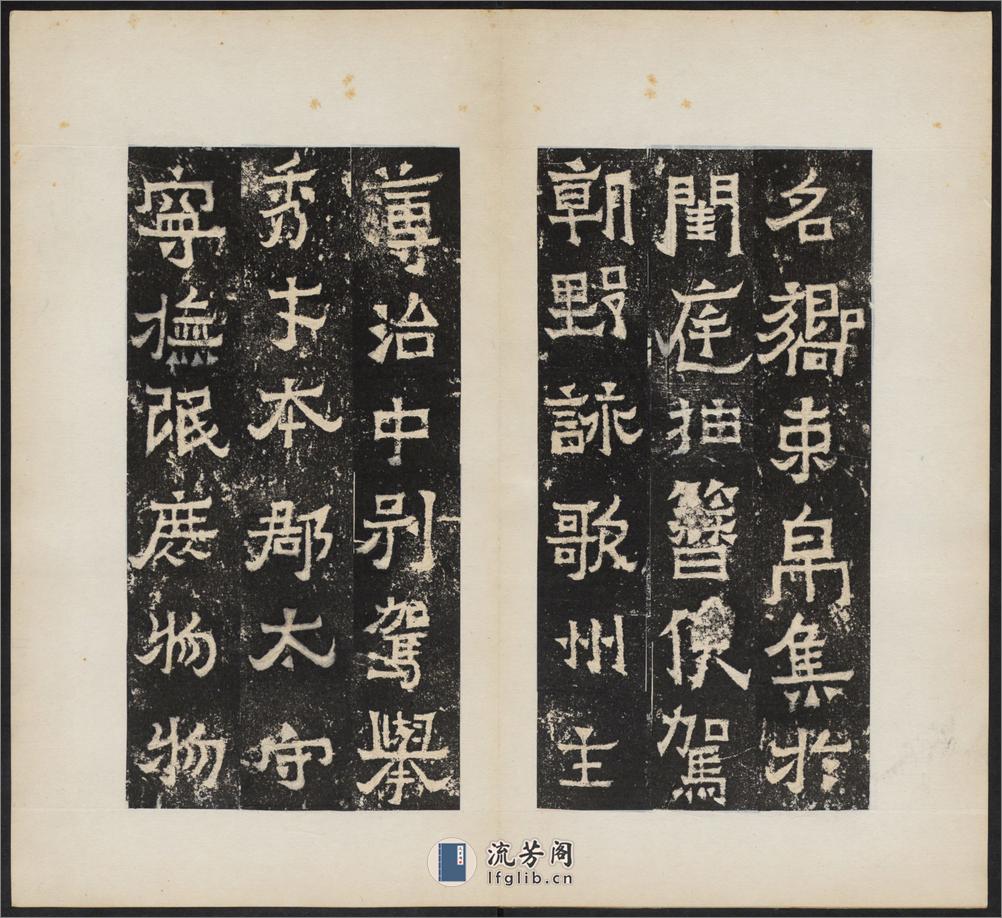 名嚮束帛集於
閨庭抽簪俟駕
朝野詠歌州主
蓴治中別駕舉
秀才本郡太守
寧撫氓庶物物
流芳阁
lfglib.cn